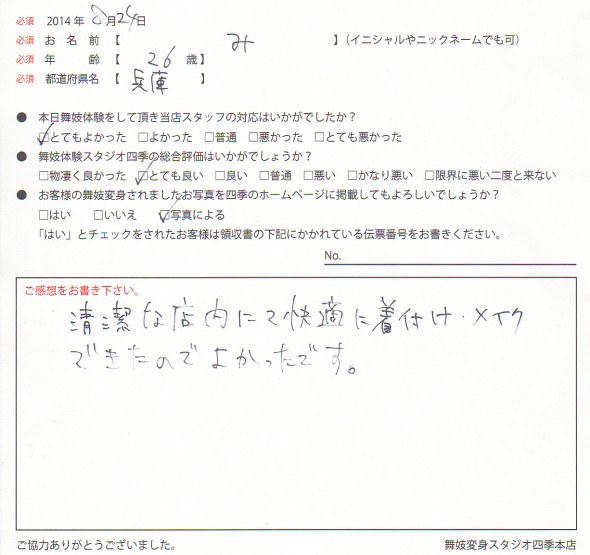 必須 2014年 8月24日
必須 お名前【 み 】(イニシャルやニックネームでも可)
必須 年齢【 26 歳】
必須 都道府県名【 兵庫 】
● 本日舞妓体験をして頂き当店スタッフの対応はいかがでしたか?
☑とてもよかった □よかった □普通 □悪かった □とても悪かった
● 舞妓体験スタジオ四季の総合評価はいかがでしょうか?
□物凄く良かった ☑とても良い □良い □普通 □悪い □かなり悪い □限界に悪い二度と来ない
● お客様の舞妓変身されましたお写真を四季のホームページに掲載してもよろしいでしょうか?
□はい □いいえ ☑写真による
「はい」とチェックをされたお客様は領収書の下記にかかれている伝票番号をお書きください。
No.
ご感想をお書き下さい。
清潔な店内にて快適に着付け・メイク
できたのでよかったです。
ご協力ありがとうございました。 舞妓変身スタジオ四季本店